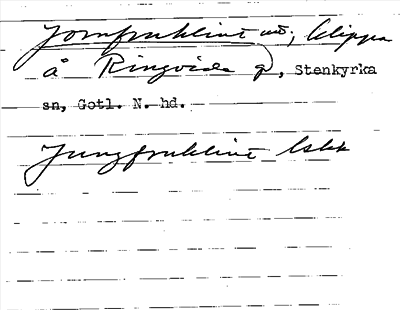 Jomfruklint ud; klippa
å Ringvide g, Stenkyrka
sn, Gotl. N. hd.
Jungfruklint